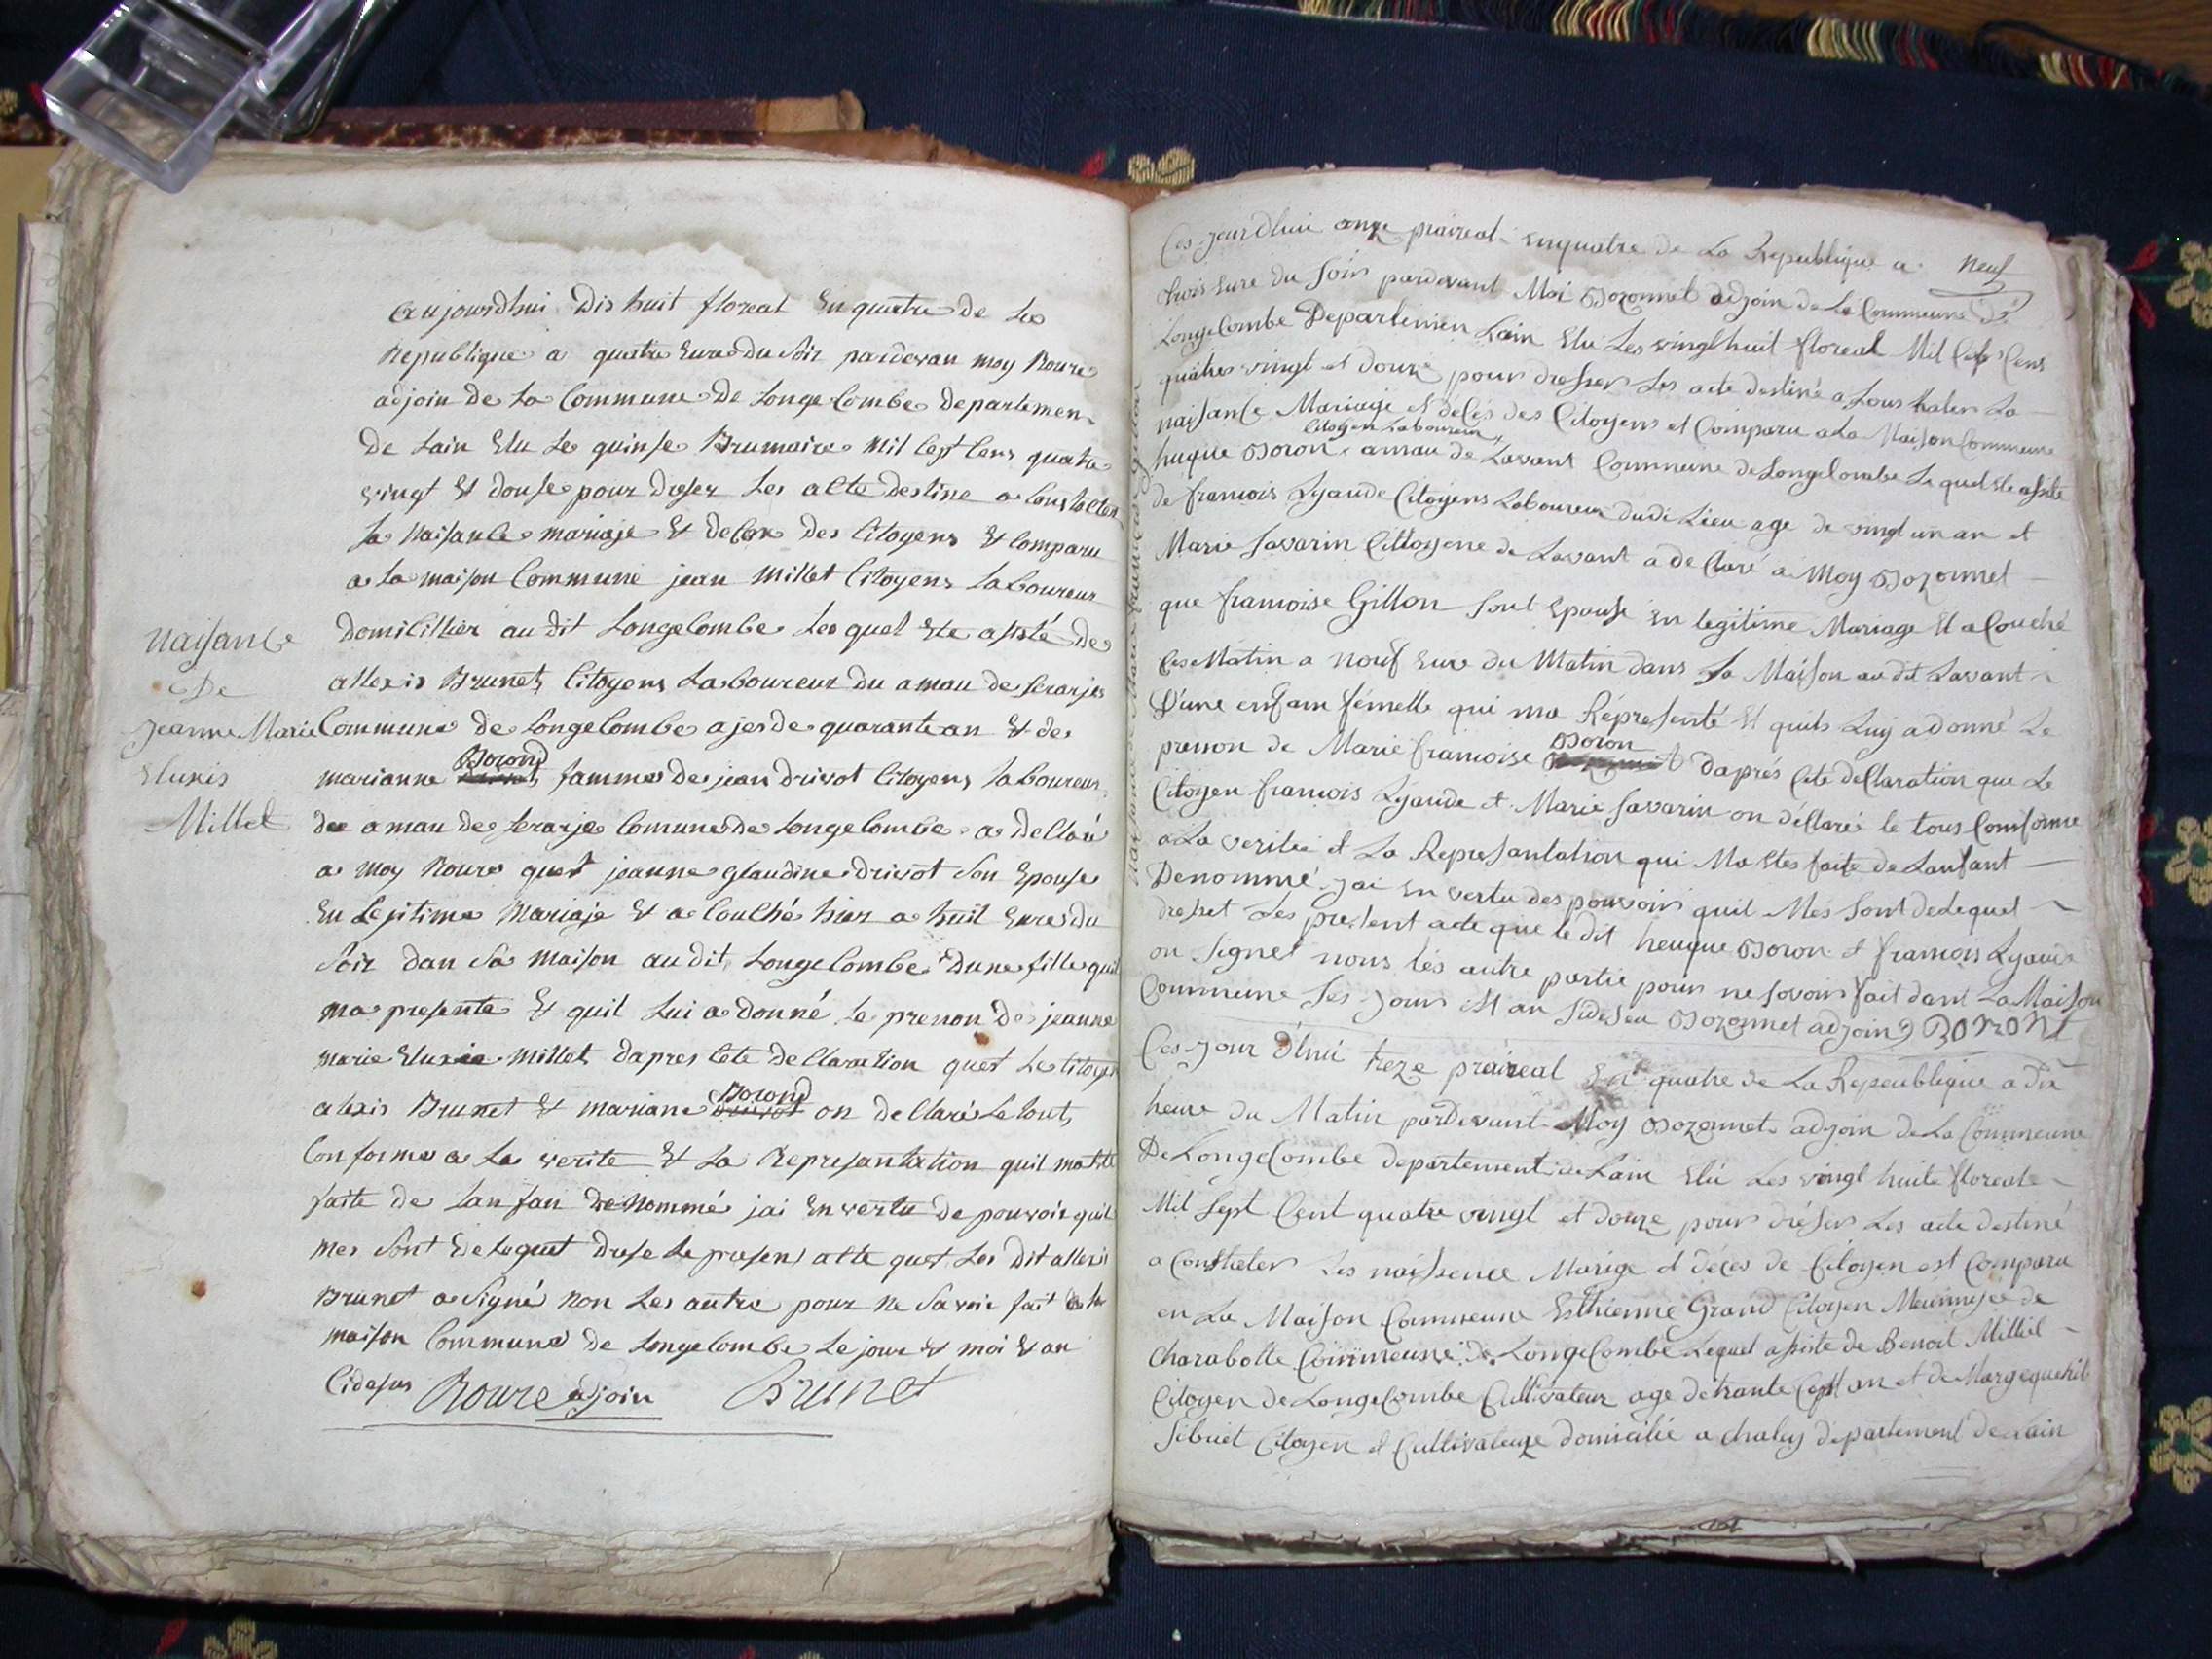 aujourdhui Dis huit floreal En quatre de La
Republique a quatre Eure du Soir pardevan moy Roure
adjoin de La Commune De Longe Combe departemen
De Lain Elu Le quinse Brumaire Mil Cept Cens quatre
vingt Et douse pour dreser Les acte destine a Constater
La Naisance mariaje Et deces Des Citoyens Et Comparu
a La maison Commune jean Millet Citoyens Laboureur
domicillier au dit Longecombe Les quel Ete asisté de
allexis Brunet Citoyens Laboureur du amau de Serarje
Commune de Longecombe ajes de quarante an Et de
marianne Borond famme de jean drivot Citoyens Laboureur
du amau de Serarje Comune de Longecombe a declaré
a moy Roure quet jeanne glaudine drivot Son Epouse
En Lejitime Mariaje Et a Couché hier a huit Eure du
Soir dan Sa maison au dit Longecombe Dune fille quil
ma presente Et quil Lui a donné Le prenon De jeanne
marie Eluxie Millet dapres Cete declaration quet Le Citoyen
alexis Brunet Et mariane Borond on declaré Le tout
Conforme a La verite Et La Represantation quil ma Ete
faite de Lanfan denommé jai En vertu de pouvoir quil
mes Sont delequet drese Le presen acte quet Les Dit allexis
Brunet a Signé Non Les autre pour Ne Savoir fait a la
maison Commune de Longecombe Le jour Et moi Et an
Cidesus Roure adjoin Brunet
Naisance
De
Jeanne Marie
Eluxis
Millet
Neuf
Ces jourdhui onze praireal En quatre de La Republique a
trois Eure du Soir pardevant Moi Bozonnet adjoin de La Commune de
Longecombe Departemen Lain Elu Les vingt huit floreal Mil Cept Cens
quatre vingt et douze pour dresser Les acte destiné a Constater La
naisance Mariage et déces des Citoyens et Comparu a La Maison Commune
Citoyen Laboureur
huque Boron amau de Lavant Commune de Longecombe Le quel Ete asisté
de framois Lyaude Citoyens Laboureur dudi Lieu age de vingt un an et
Marie Savarin Cittoyene de Lavant a declaré a Moy Bozonnet
que framoise Gillon Sont Epouse En legitime Mariage Et a Couché
Ces Matin a Neuf Eure du Matin dans Sa Maison au dit Lavant
D'une enfam fémelle qui ma Répresenté Et quils Luy a donné Le
prenon de Marie framoise Boron daprés Cete declaration que Le
Citoyen framois Lyaude et Marie Savarin on déclaré le tous Comforme
a La verité et La Represantation qui Ma Etes faite de Lanfant
Denommé jai En vertu des pouvoir quil Mes Sont dedequel
dresset Les present acte que le dit heuque Boron et framois Lyaude
on Signet nous lés autre partie pour ne Savoir fait dant La Maison
Commune Les jour Et an Sidesu Bozonnet adjoin BORONT
Ces jour D'hui treze praireal En quatre de La Republique a dix
heure du Matin pardevant Moy Bozonnet adjoin de La Commune
De LongeCombe departement de Lain Elu Les vingt huite floreale
Mil Sept Cent quatre vingt et douze pour dréser Les acte destiné
a Constater Les naissence Marige et déces de Citoyen est Comparu
en La Maison Commune Esthienne Grand Citoyen de
Charabotte Commeune de LongeCombe Lequel asiste de Benoit Milliet
Citoyen de LongeCombe Cultivateur age de trante Cept an et de
Citoyen et Cultivateur domicilié a chaley département de Lain